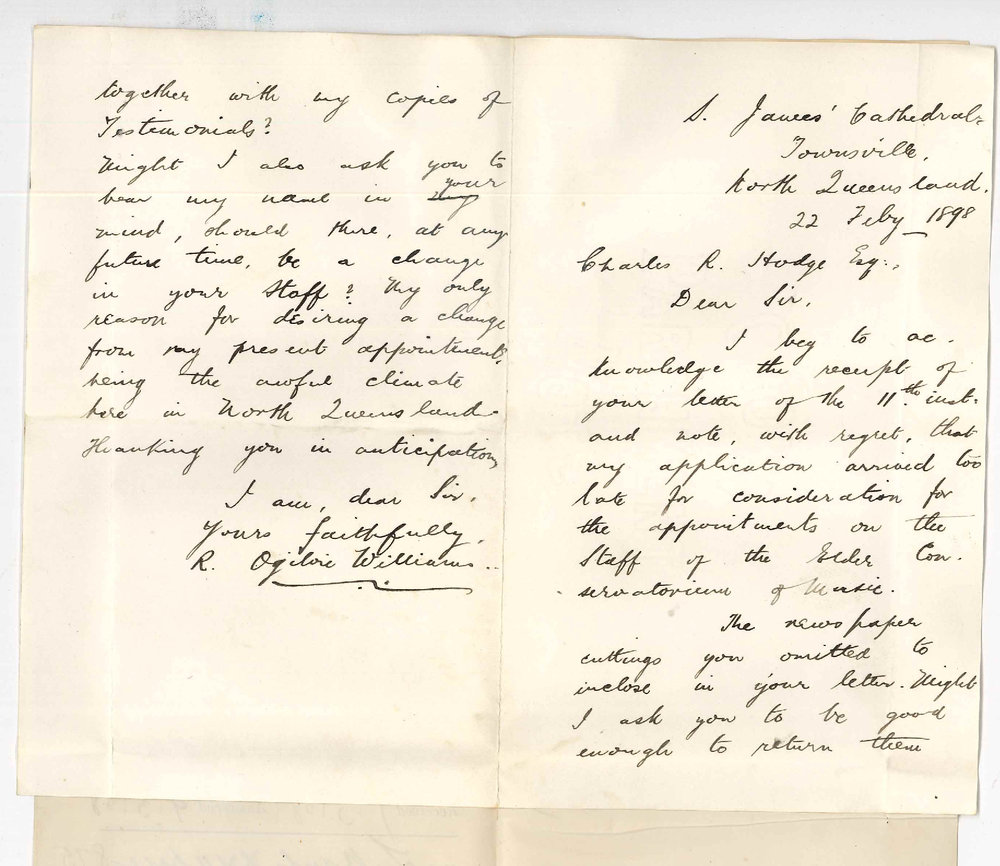 S. James' Cathedral-
Townsville,
North Queensland.
22 Feby 1898
Charles R. Hodge Esq:,
Dear Sir,
I beg to ac-
knowledge the receipt of
your letter of the 11th. inst:
and note, with regret, that
my application arrived too
late for consideration for
the appointments on the
Staff of the Elder Con-
servatorium of Music.
The newspaper
cuttings you omitted to
inclose in your letter. Might
I ask you to be good
enough to return them
together with my copies of
Testimonials?
Might I also ask you to
bear my name in your
mind, should there, at any
future time, be a change
in your Staff? My only
reason for desiring a change
from my present appointment,
being the awful climate
here in North Queensland-
Thanking you in anticipation,
I am, dear Sir,
Yours faithfully,
R. Ogilvie Williams.